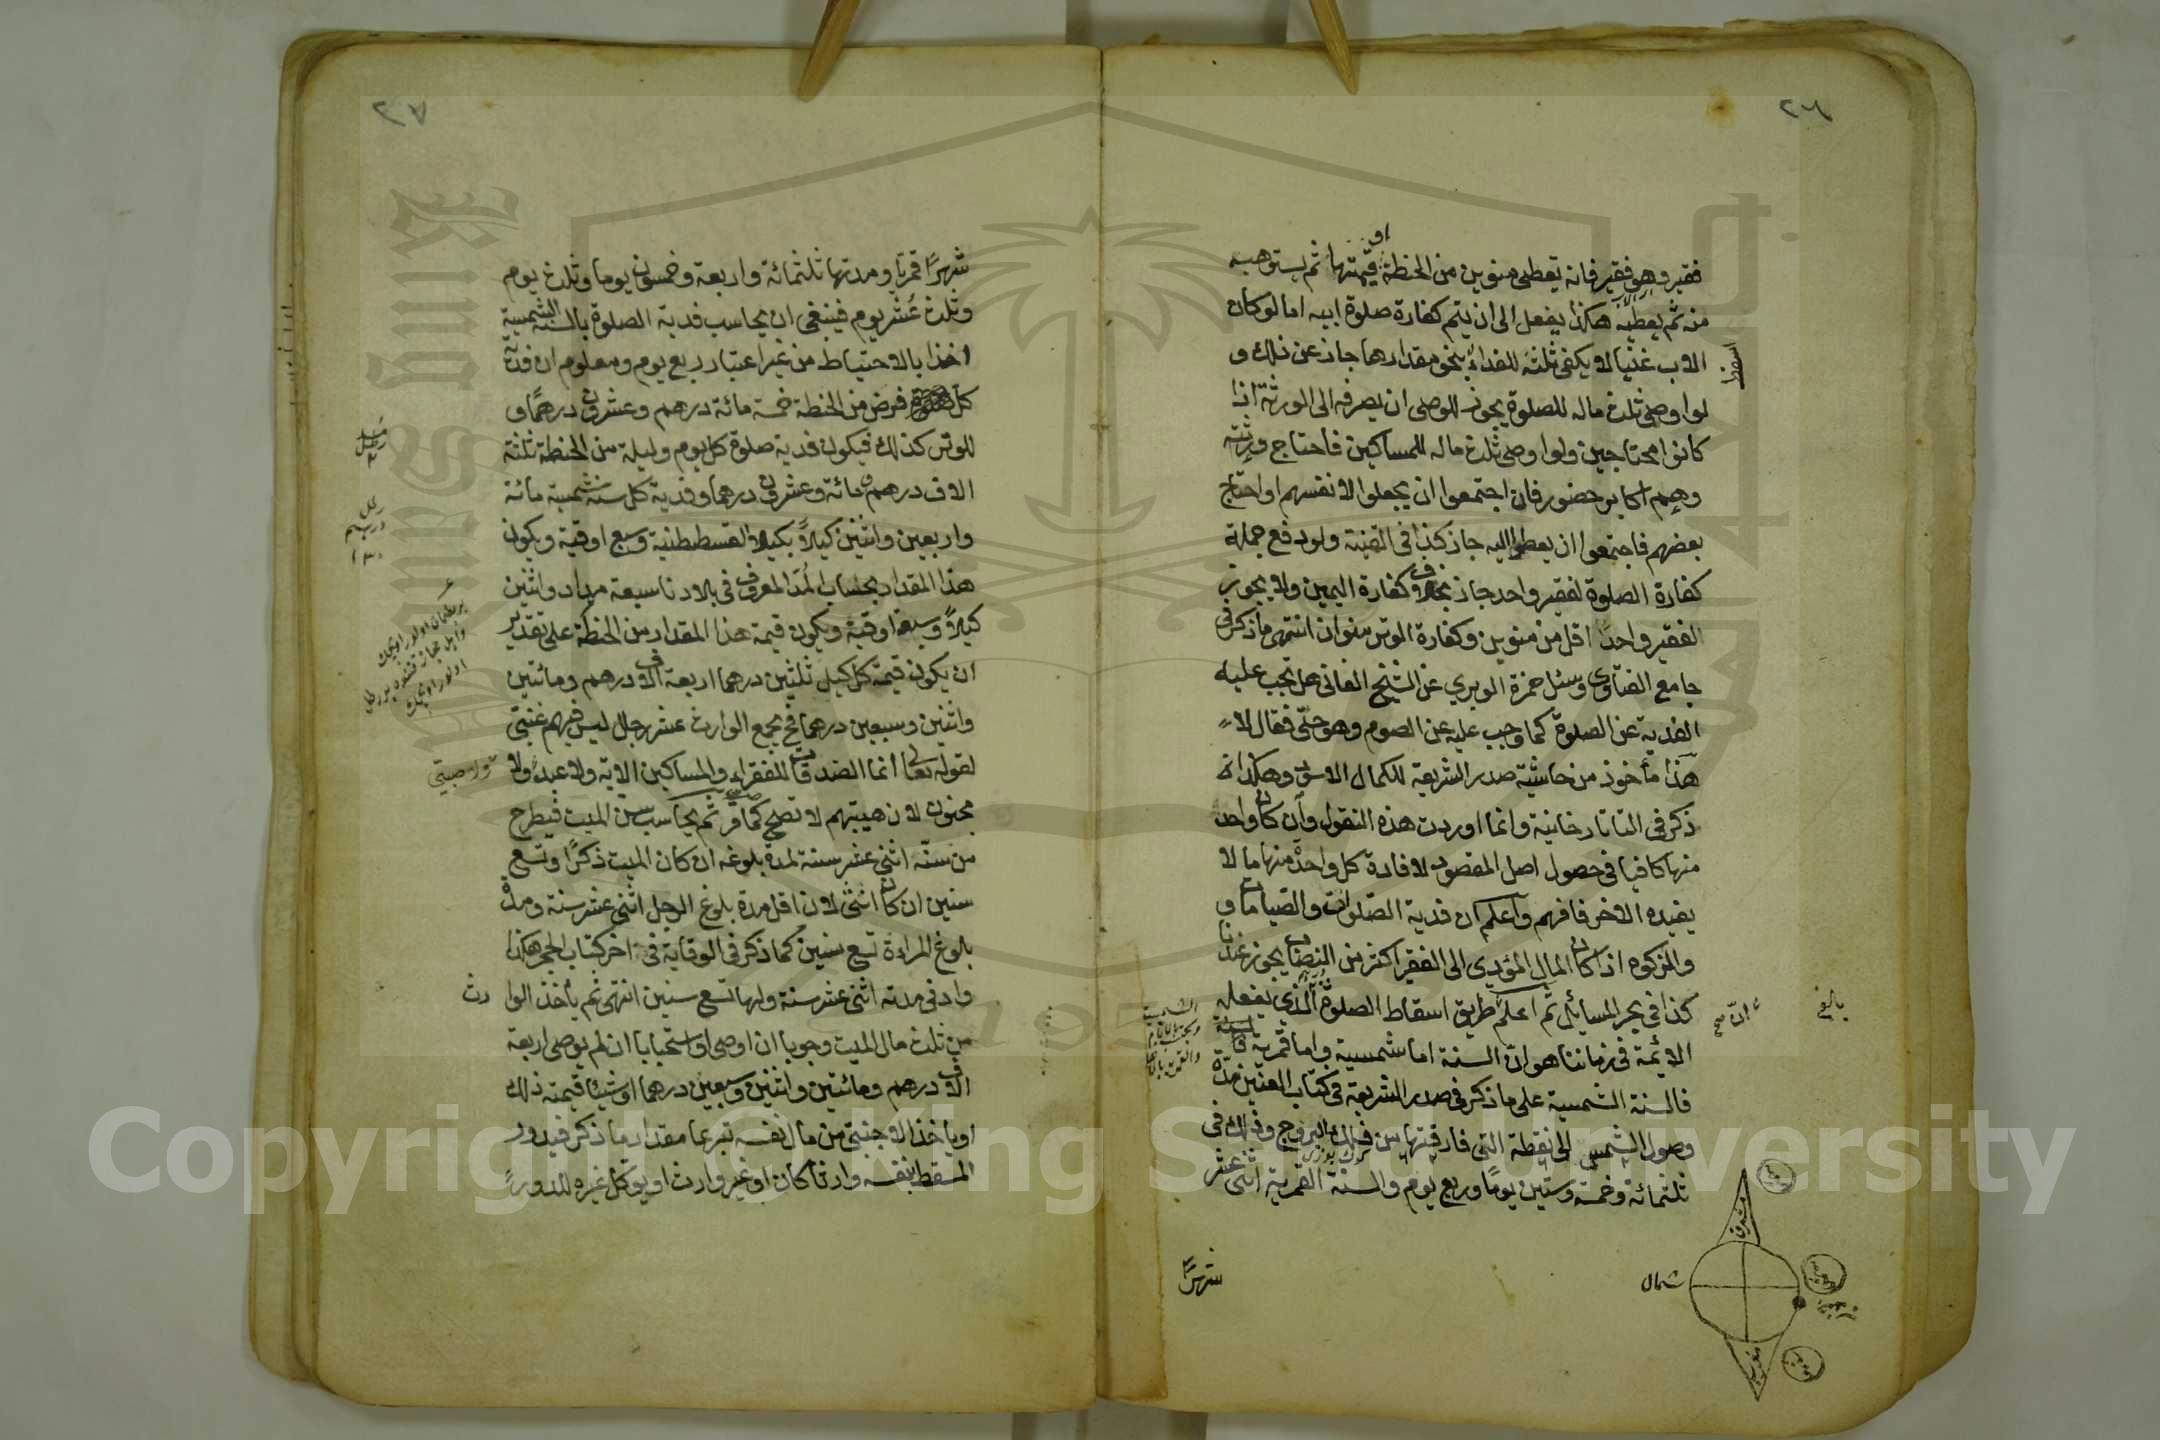 ٢٦
فقير وهو فقير فانه يعطى منوين من الحنطة او قيمتها ثم يستوهبه
منه ثم يعطيه هكذا يفعل الى ان يتم كفارة صلوة ابيه اما لو كان
الاب غنيا لا يكفى ثلثه للفداء بنحو مقدارها جاز عن ذلك و
لو اوصى ثلث ماله للصلوة يجوز للوصى ان يصرفه الى الورثة اذا
كانوا محتاجين ولو اوصى ثلث ماله للمساكين فاحتاج ورثته
وهم اكابر حضور فان اجتمعوا ان يجعلوا لانفسهم او احتاج
بعضهم فاجتمعوا ان يعطوا اليه جاز كذا فى القنية ولو دفع جملة
كفارة الصلوة لفقير واحد جاز بخلاف كفارة اليمين ولا يجوز
الفقير واحدا اقل من منوين وكفارة الوتر منوان انتهى ما ذكر فى
جامع الفتاوى وسئل حمزة الوبري عن الشيخ الفانى هل تجب عليه
الفدية عن الصلوة كما وجب عليه عن الصوم وهو حى فقال لا
هذا مأخوذ من حاشية صدر الشريعة للكمال الاسود وهكذا
ذكر فى التاتارخانية وانما اوردت هذه النقول وان كان واحد
منها كافيا فى حصول اصل المقصود لافادة كل واحد منها ما لا
يفيده الاخر فافهم واعلم ان فدية الصلوات والصيامات
والزكوة اذا كان المال المؤدى الى الفقير اكثر من النصاب يجوز عندنا
كذا فى بحر المسائل ثم اعلم طريق اسقاط الصلوة الذي يفعله
الائمة فى زماننا هو ان السنة اما شمسية واما قمرية
فالسنة الشمسية على ما ذكر فى صدر الشريعة فى كتاب العنين مدة
وصول الشمس الى نقطة التى فارقتها من فلك البروج وذلك فى
ثلثمائة وخمسة وستين يوما وربع يوم والسنة القمرية اثنى عشر
شهرًا
اسقط
شرق
شمال
مغرب
٢٧
شهرًا قمريا ومدتها ثلثمائة واربعة وخمسون يوما وثلث يوم
وثلث عشر يوم فينبغى ان يحاسب فدية الصلوة بالسنة الشمسية
اخذا بالاحتياط من غير اعتبار ربع يوم ومعلوم ان فدية
كل فرض من الحنطة خمسة مائة درهم وعشرون درهما و
للوتر كذلك فيكون فدية صلوة كل يوم وليلة من الحنطة ثلثة
الاف درهم ومائة وعشرون درهما وفدية كل سنة شمسية مائة
واربعين واثنين كيلاً بكيلة القسطنطنية وسبع اوقية ويكون
هذا المقدار بحساب المد المعروف فى بلادنا سبعة مداد واثنين
كيلاً وسبعة اوقية ويكون قيمة هذا المقدار من الحنطة على تقدير
ان يكون قيمة كل كيل ثلثين درهما اربعة الاف درهم ومائتين
واثنين وسبعين درهما فح يجمع الوارث عشر رجل ليس فيهم غنى
لقوله تعالى انما الصدقات للفقراء والمساكين الاية ولا عبد ولا
مجنون لان هيبتهم لا تصح كما مر ثم يحاسب سن الميت فيطرح
من سنه اثنى عشر سنة لمدة بلوغه ان كان الميت ذكرًا وتسع
سنين ان كان انثى لان اقل مدة بلوغ الرجل اثنى عشر سنة ومدة
بلوغ المراءة تسع سنين كما ذكر فى الوقاية فى اخر كتاب الحجر هكذا
وادنى مدته اثنى عشر سنة ولها تسع سنين انتهى ثم يأخذ الوا
رث
من ثلث مال الميت وجوبا ان اوصى او استحبابا ان لم يوصى اربعة
الاف درهم ومائتين واثنين وسبعين درهما او شيئا قيمته ذلك
او ياخذ الاجنبى من مال نفسه تبرعا مقدار ما ذكر فيدور
المسقط بنفسه وارثا كان او غير وارث او يوكل غيره للدور
ولا صبى
رطل
درهم
١٣٠
Copyright © King Saud University
1957